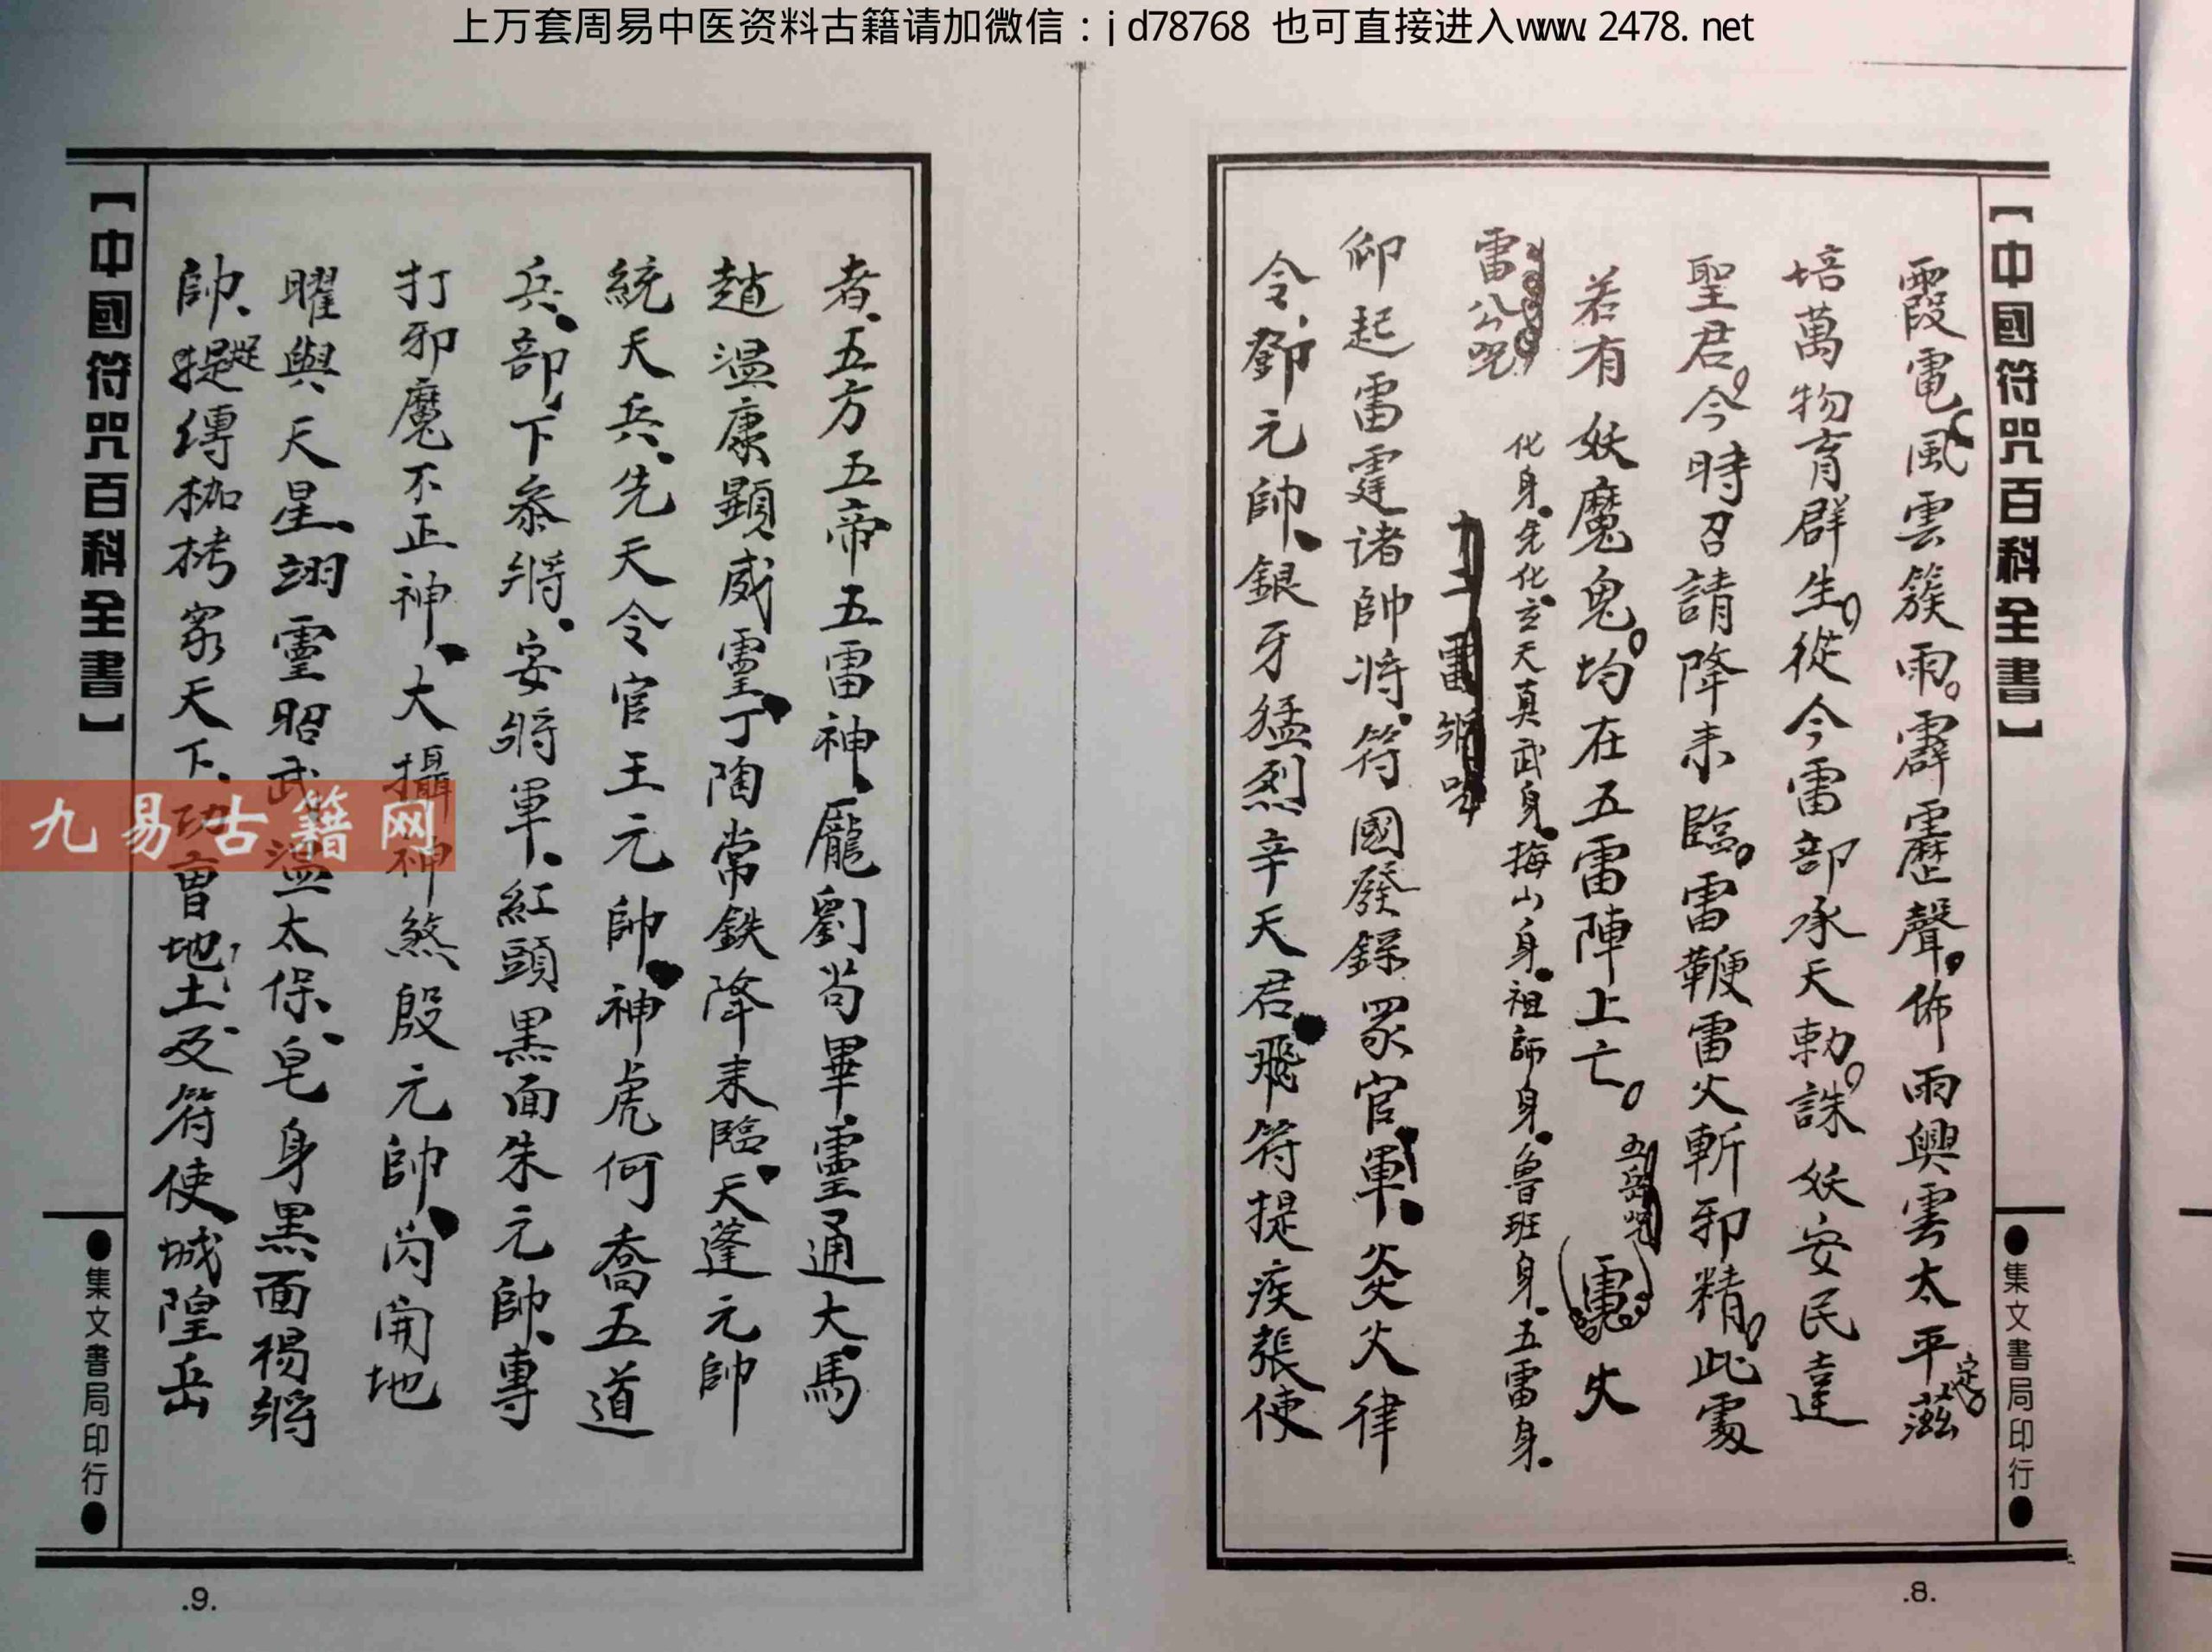 上万套周易中医资料古籍请加微信：jd78768 也可直接进入www.2478.net
【中國符咒百科全書】
●集文書局印行●
霞電風雲簇雨。霹靂聲。佈雨興雲太平定滋
培萬物育群生。從今雷部承天勅。誅妖安民達
聖君。今時召請降来臨。雷鞭雷火斬邪精。此處
若有妖魔鬼。均在五雷陣上亡。
五岳咒
火
化身.先化玄天真武身.梅山身.祖師身.魯班身.五雷身.
雷公咒
十二雷
仰起雷霆諸帥將.符國發錄眾官軍.炎火律
令.鄧元帥.銀牙猛烈辛天君.飛符提疾張使
.8.
者.五方五帝五雷神.龐劉苟畢靈通大馬
趙溫康顯威靈.丁陶常鉄降来臨.天蓬元帥
統天兵.先天令官王元帥.神虎何喬五道
兵.部下叅將.安將軍.紅頭黑面朱元帥.專
打邪魔不正神.大攝神煞殷元帥.丙開地
曜與天星.翊靈昭武溫太保.皂身黑面楊將
帥.提縛枷栲眾天下.功曹地土及符使城隍岳
【中國符咒百科全書】
●集文書局印行●
.9.
九易古籍网